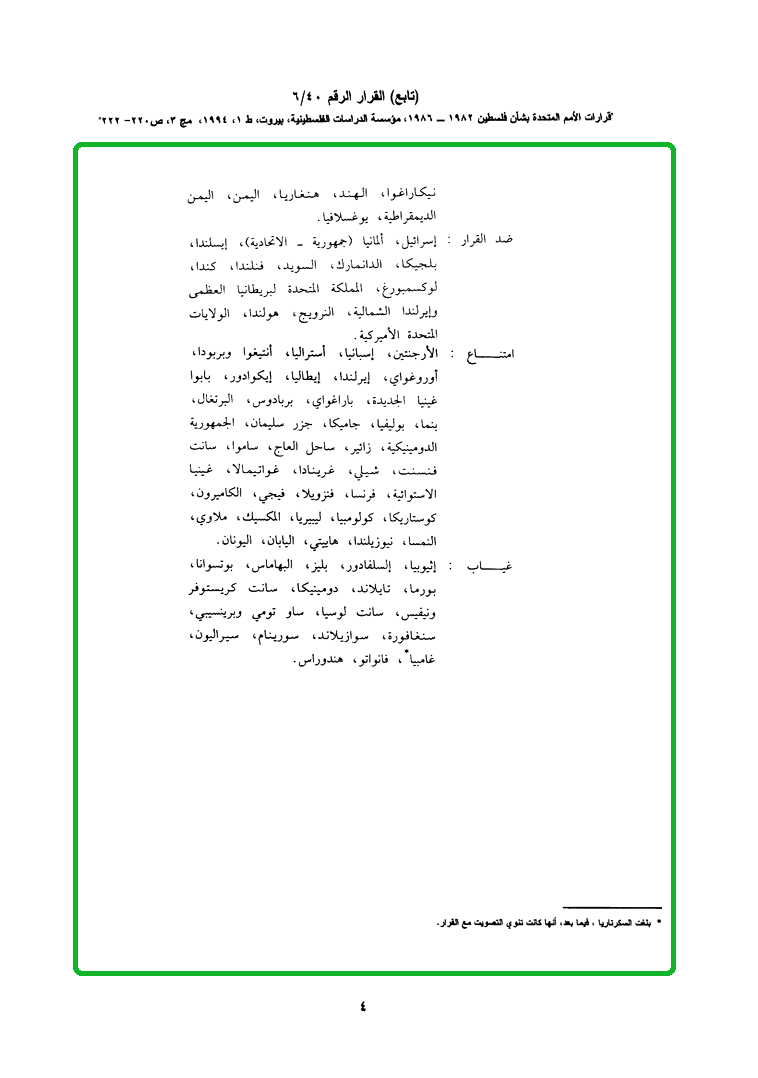 (تابع) القرار الرقم ٦/٤٠
"قرارات الأمم المتحدة بشأن فلسطين ١٩٨٢ ــ ١٩٨٦، مؤسسة الدراسات الفلسطينية، بيروت، ط ١، ١٩٩٤، مج ٣، ص٢٢٠- ٢٢٢"
نيكاراغوا، الهند، هنغاريا، اليمن، اليمن
الديمقراطية، يوغسلافيا.
ضد القرار : إسرائيل، ألمانيا (جمهورية ــ الاتحادية)، إيسلندا،
بلجيكا، الدانمارك، السويد، فنلندا، كندا،
لوكسمبورغ، المملكة المتحدة لبريطانيا العظمى
وإيرلندا الشمالية، النرويج، هولندا، الولايات
المتحدة الأميركية.
امتنـــــاع : الأرجنتين، إسبانيا، أستراليا، أنتيغوا وبربودا،
أوروغواي، إيرلندا، إيطاليا، إيكوادور، بابوا
غينيا الجديدة، باراغواي، بربادوس، البرتغال،
بنما، بوليفيا، جاميكا، جزر سليمان، الجمهورية
الدومينيكية، زائير، ساحل العاج، ساموا، سانت
فنسنت، شيلي، غرينادا، غواتيمالا، غينيا
الاستوائية، فرنسا، فنزويلا، فيجي، الكاميرون،
كوستاريكا، كولومبيا، ليبيريا، المكسيك، ملاوي،
النمسا، نيوزيلندا، هاييتي، اليابان، اليونان.
غيـــــاب : إثيوبيا، إلسلفادور، بليز، البهاماس، بوتسوانا،
بورما، تايلاند، دومينيكا، سانت كريستوفر
ونيفيس، سانت لوسيا، ساو تومي وبرينسيبي،
سنغافورة، سوازيلاند، سورينام، سيراليون،
غامبيا*، فانواتو، هندوراس.
* بلغت السكرتاريا ، فيما بعد، أنها كانت تنوي التصويت مع القرار.
٤